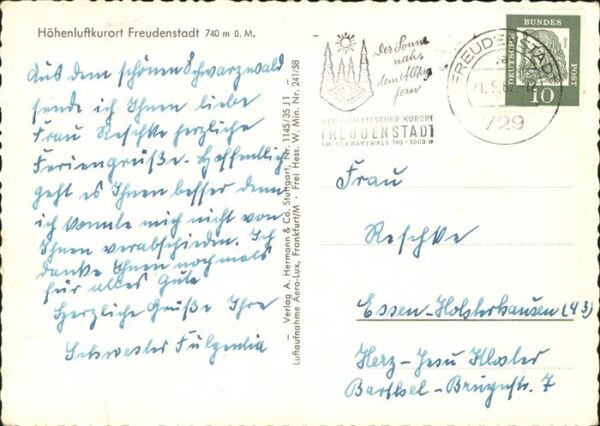 Höhenluftkurort Freudenstadt 740 m ü. M.
Aus dem schönen Schwarzwald
sende ich Ihnen liebe
Frau Reschke herzliche
Feriengrüße. Hoffentlich
geht es Ihnen besser denn
ich konnte mich nicht von
Ihnen verabschieden. Ich
danke Ihnen nochmals
für alles Gute
Herzliche Grüße Ihre
Schwester Fulgentia
Verlag A. Hermann & Co. Stuttgart, Nr. 1145/35 J 1
Luftaufnahme Aero-Lux, Frankfurt/M · Frei Hess. W. Min. Nr. 241/58
Der Sonne
nah,
dem Alltag
fern
HEILKLIMATISCHER KURORT
FREUDENSTADT
IM SCHWARZWALD 740-1000 m
FREUDENSTADT
729
DEUTSCHE
BUNDES
POST
10
Frau
Reschke
Essen-Holsterhausen (43)
Herz-Jesu Kloster
Barthel-Bruynstr. 7